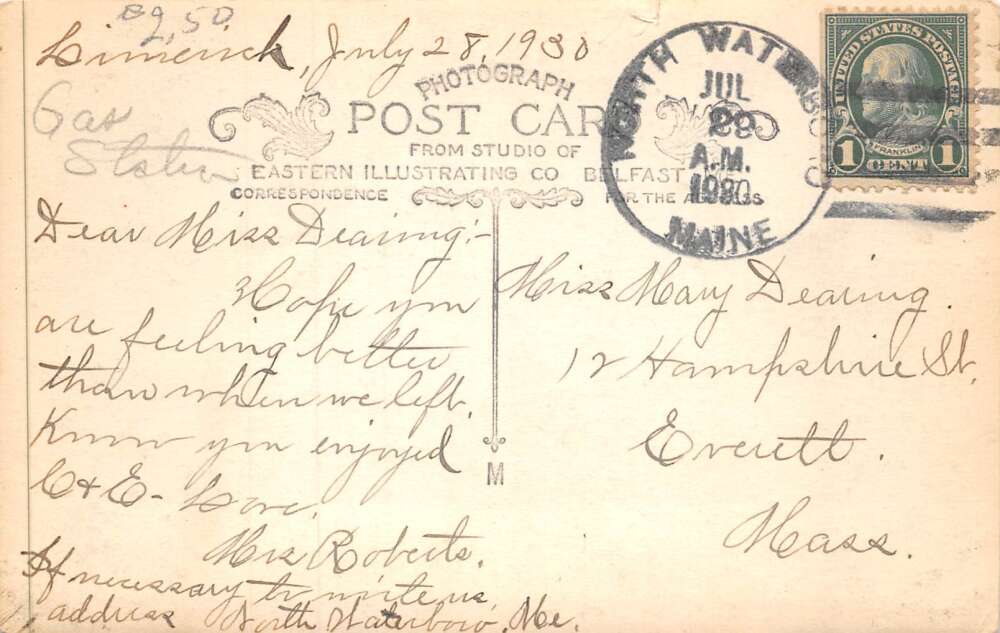 2,50
Limerick, July 28, 1930
Gas
Station
PHOTOGRAPH
POST CAR
FROM STUDIO OF
EASTERN ILLUSTRATING CO BELFAST
CORRESPONDENCE
FOR THE ADDRESS
NORTH WATERBORO
JUL
29
A.M.
1930
MAINE
UNITED STATES POSTAGE
FRANKLIN
1 CENT 1
Dear Miss Dearing:-
Hope you
are feeling better
than when we left.
Know you enjoyed
C & E - Love.
Mrs Roberts.
If necessary to write us,
address North Waterboro, Me.
M
Miss Mary Dearing.
12 Hampshire St.
Everett.
Mass.